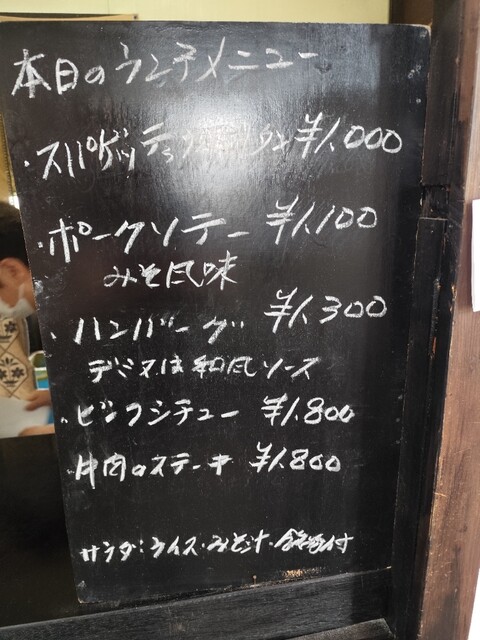 本日のランチメニュー
・スパゲッティ ¥1,000
・ポークソテー ¥1,100
みそ風味
・ハンバーグ ¥1,300
デミ又は和風ソース
・ビーフシチュー ¥1,800
・牛肉のステーキ ¥1,800
サラダ・ライス・みそ汁・付